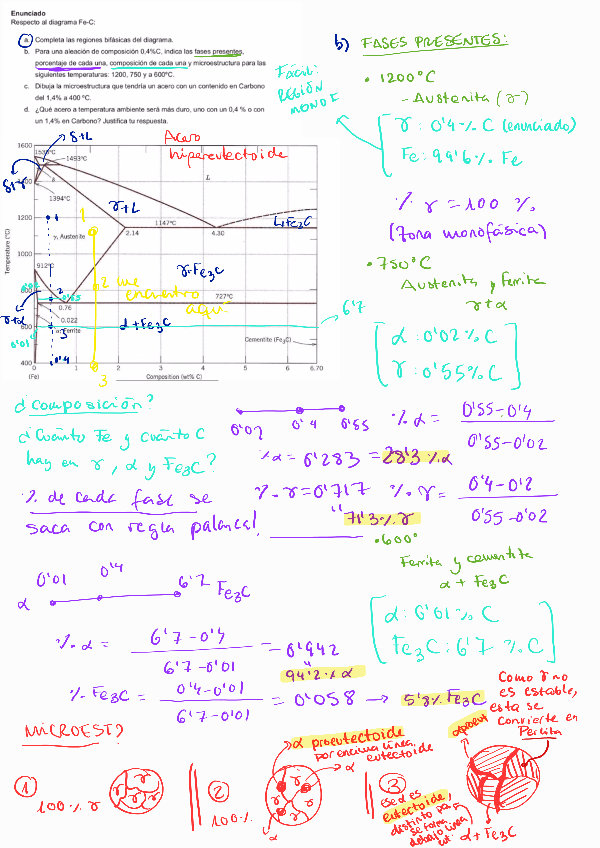 Enunciado
Respecto al diagrama Fe-C:
a. Completa las regiones bifásicas del diagrama.
b. Para una aleación de composición 0,4%C, indica las fases presentes,
porcentaje de cada una, composición de cada una y microestructura para las
siguientes temperaturas: 1200, 750 y a 600ºC.
c. Dibuja la microestructura que tendría un acero con un contenido en Carbono
del 1,4% a 400 ºC.
d. ¿Qué acero a temperatura ambiente será más duro, uno con un 0,4 % o con
un 1,4% en Carbono? Justifica tu respuesta.
δ+L
Acero
hipereutectoide
1600
1538°C
1493°C
δ+γ
δ
L
1400
1394°C
γ+L
1147°C
L+Fe3C
1200
1
1
2.14
4.30
γ, Austenito
Temperature (°C)
1000
912°C
γ+Fe3C
0'02
800
2
0'55
2 me
encuentro
aquí
727°C
γ+α
0.76
0.022
6'7
600
α+Fe3C
0'01
3
α, Ferrite
Cementite (Fe3C)
400
0'4
0
1
2
3
4
5
6
6.70
(Fe)
3
Composition (wt% C)
b) FASES PRESENTES:
Fácil:
REGIÓN
MONOF
• 1200°C
- Austenita (γ)
γ: 0'4% C (enunciado)
Fe: 99'6% Fe
% γ = 100 %
(Zona monofásica)
• 750°C
Austenita y Ferrita
γ+α
α: 0'02% C
γ: 0'55% C
¿Composición?
¿Cuánto Fe y cuánto C
hay en γ, α y Fe3C?
% de cada fase se
saca con regla palanca!
0'02 0'4 0'55
% α = 0'55-0'4
0'55-0'02
% α = 0'283 = 28'3 % α
% γ = 0'717
71'3% γ
% γ = 0'4-0'2
0'55-0'02
• 600°
Ferrita y cementita
α + Fe3C
α: 0'01% C
Fe3C: 6'7 % C
0'01 0'4 6'7
α Fe3C
% α = 6'7-0'4
6'7-0'01
= 0'942
94'2% α
% Fe3C = 0'4-0'01
6'7-0'01
= 0'058 → 5'8% Fe3C
Como γ no
es estable,
esta se
convierte en
Perlita
MICROEST?
1
100% γ
2
100%
α proeutectoide
por encima línea
eutectoide
α
γ
α
3
ese α es
eutectoide,
distinto
se forma
debajo línea
eut.
α + Fe3C